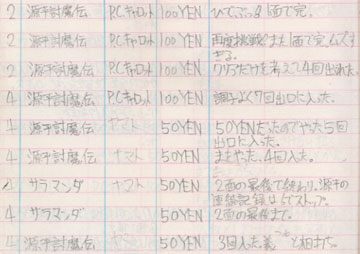 2 源平討魔伝 P.Cキャロット 100YEN ひでぶっ!! 1面で完。
2 源平討魔伝 P.Cキャロット 100YEN 再度挑戦。また1面で完。ムズすぎる。
2 源平討魔伝 P.Cキャロット 100YEN クリアだけを考えて4回出れた
4 源平討魔伝 P.Cキャロット 100YEN 調子よく7回出口に入った。
4 源平討魔伝 ヤマト 50YEN 50YENだったのでやった5回
出口に入った。
4 源平討魔伝 ヤマト 50YEN またやった、4回入った。
4 サラマンダ ヤマト 50YEN 2面の最後で終わり、源平の
連続記録は5でストップ。
4 サラマンダ 50YEN 2面の最後まで。
4 源平討魔伝 50YEN 3回入った。義 と相打ち。